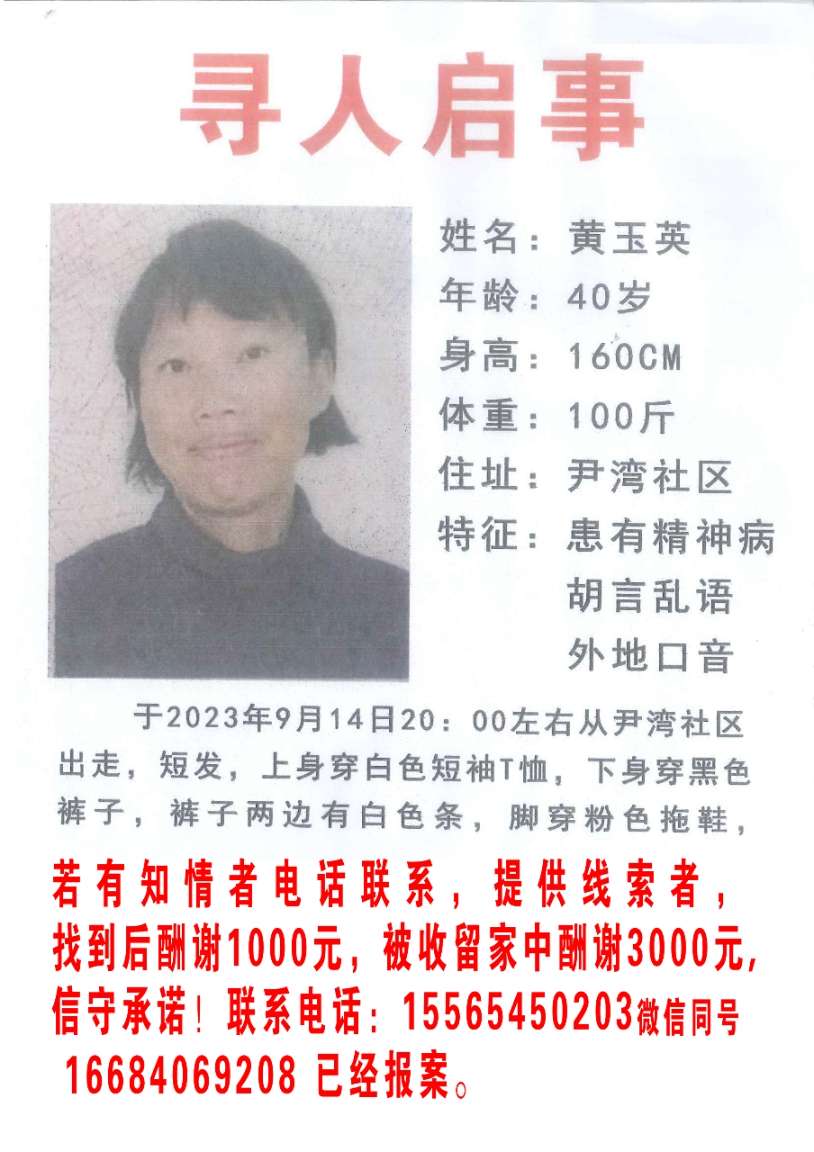 寻人启事
姓名：黄玉英
年龄：40岁
身高：160CM
体重：100斤
住址：尹湾社区
特征：患有精神病
胡言乱语
外地口音
于2023年9月14日20：00左右从尹湾社区
出走，短发，上身穿白色短袖T恤，下身穿黑色
裤子，裤子两边有白色条，脚穿粉色拖鞋，
若有知情者电话联系，提供线索者，
找到后酬谢1000元，被收留家中酬谢3000元，
信守承诺！联系电话：15565450203微信同号
16684069208 已经报案。